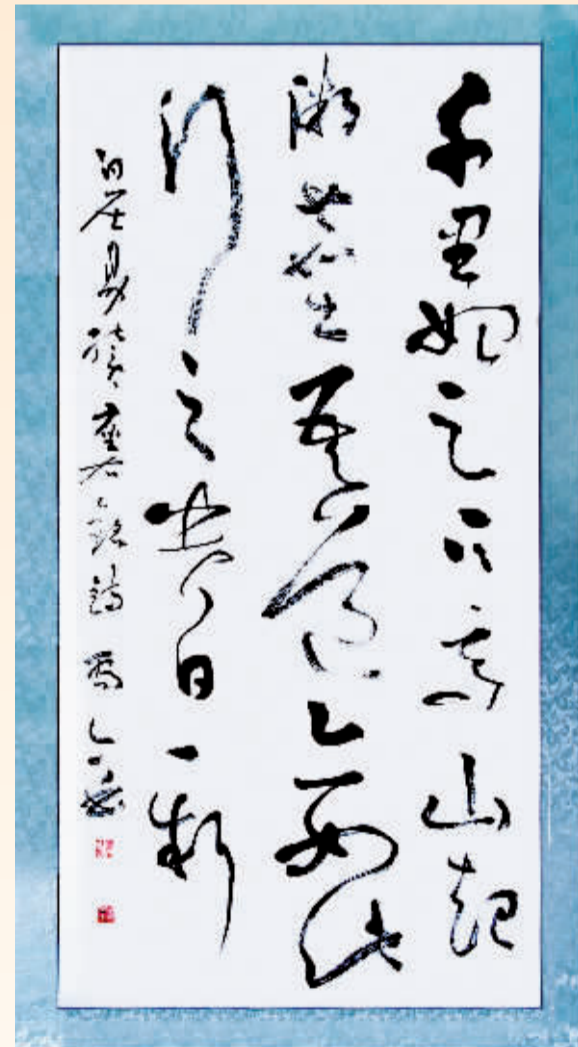 千里始足下高山起
微塵吾道亦如此
行之貴日新
白居易續座右銘詩